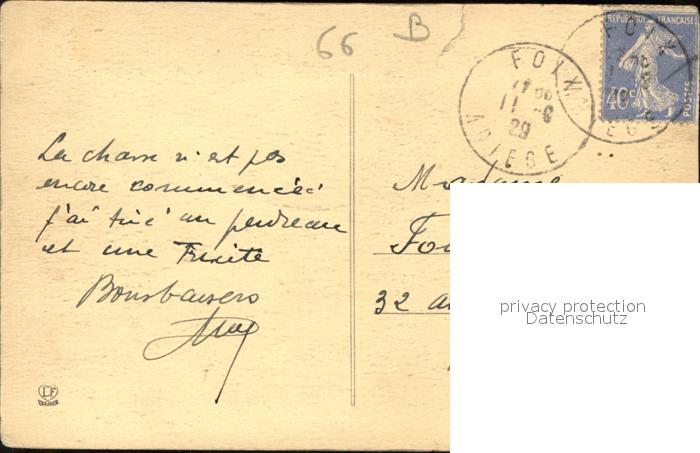 66 B
FOIX
11 -8
29
ARIEGE
FOIX
ARIEGE
REPUBLIQUE FRANÇAISE
40c
POSTES
La chasse n'est pas
encore commencée
j'ai tué un perdreau
et une Truite
Bons baisers
Madame
32
LF
privacy protection
Datenschutz